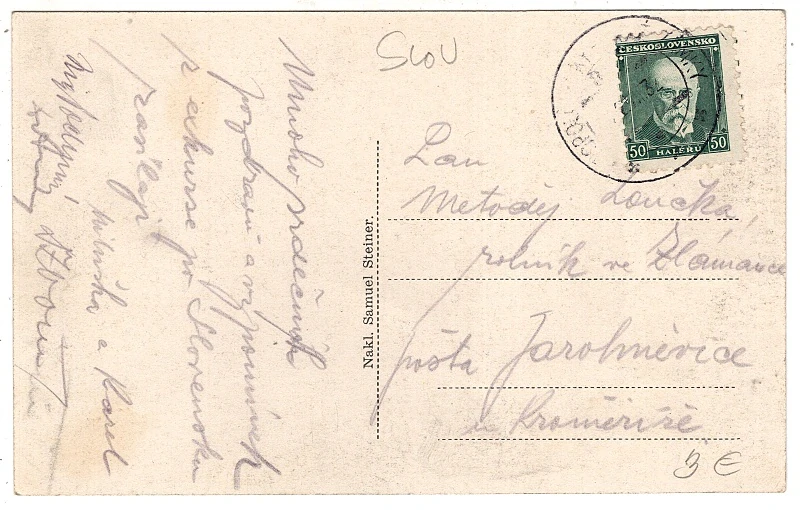 SLOV
Mnoho srdečných
pozdravů a vzpomínek
z exkurse po Slovensku
zasílají
Miluška a Karel
Nakl. Samuel Steiner.
ČESKOSLOVENSKO
50 50
HALÉŘŮ
Pan
Metoděj Loučka,
rolník ve Zlámance
pošta Jarohněvice
u Kroměříže
3 €